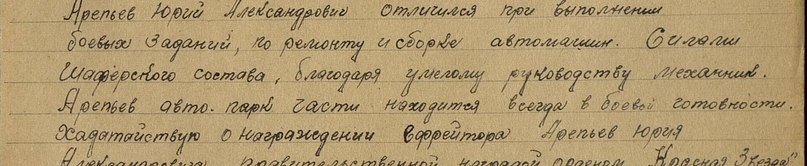 Арепьев Юрий Александрович отличился при выполнении
боевых заданий, по ремонту и сборке автомашин. Силами
шаферского состава, благодаря умелому руководству механник.
Арепьев авто-парк части находится всегда в боевой готовности.
Хадатайствую о награждении ефрейтора Арепьев Юрия
Александровича правительственной наградой орденом "Красная Звезда"